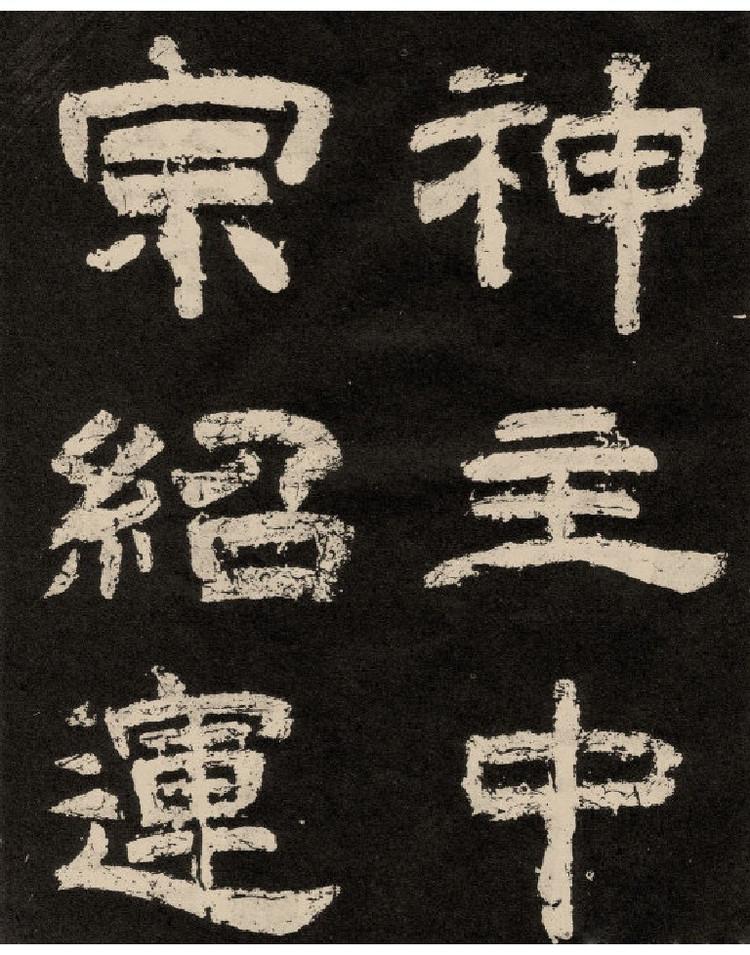 神主中
宗紹運